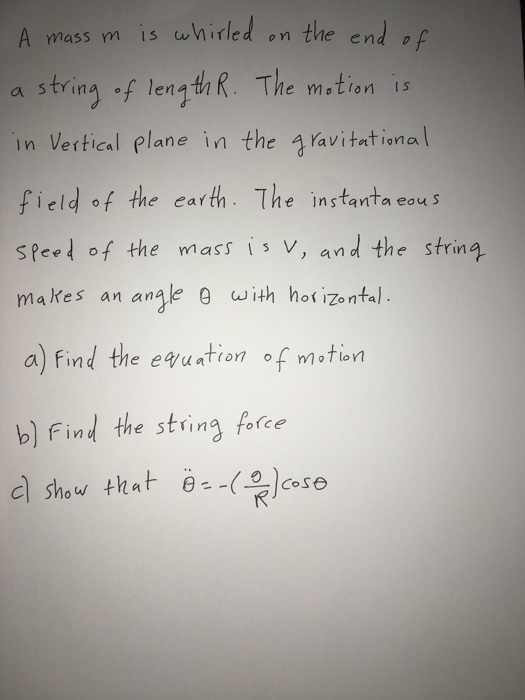 A mass m is whirled on the end of
a string of length R. The motion is
in Vertical plane in the gravitational
field of the earth. The instantaeous
speed of the mass is v, and the string
makes an angle θ with horizontal.
a) Find the equation of motion
b) Find the string force
c) show that θ̈ = -(g/R)cosθ